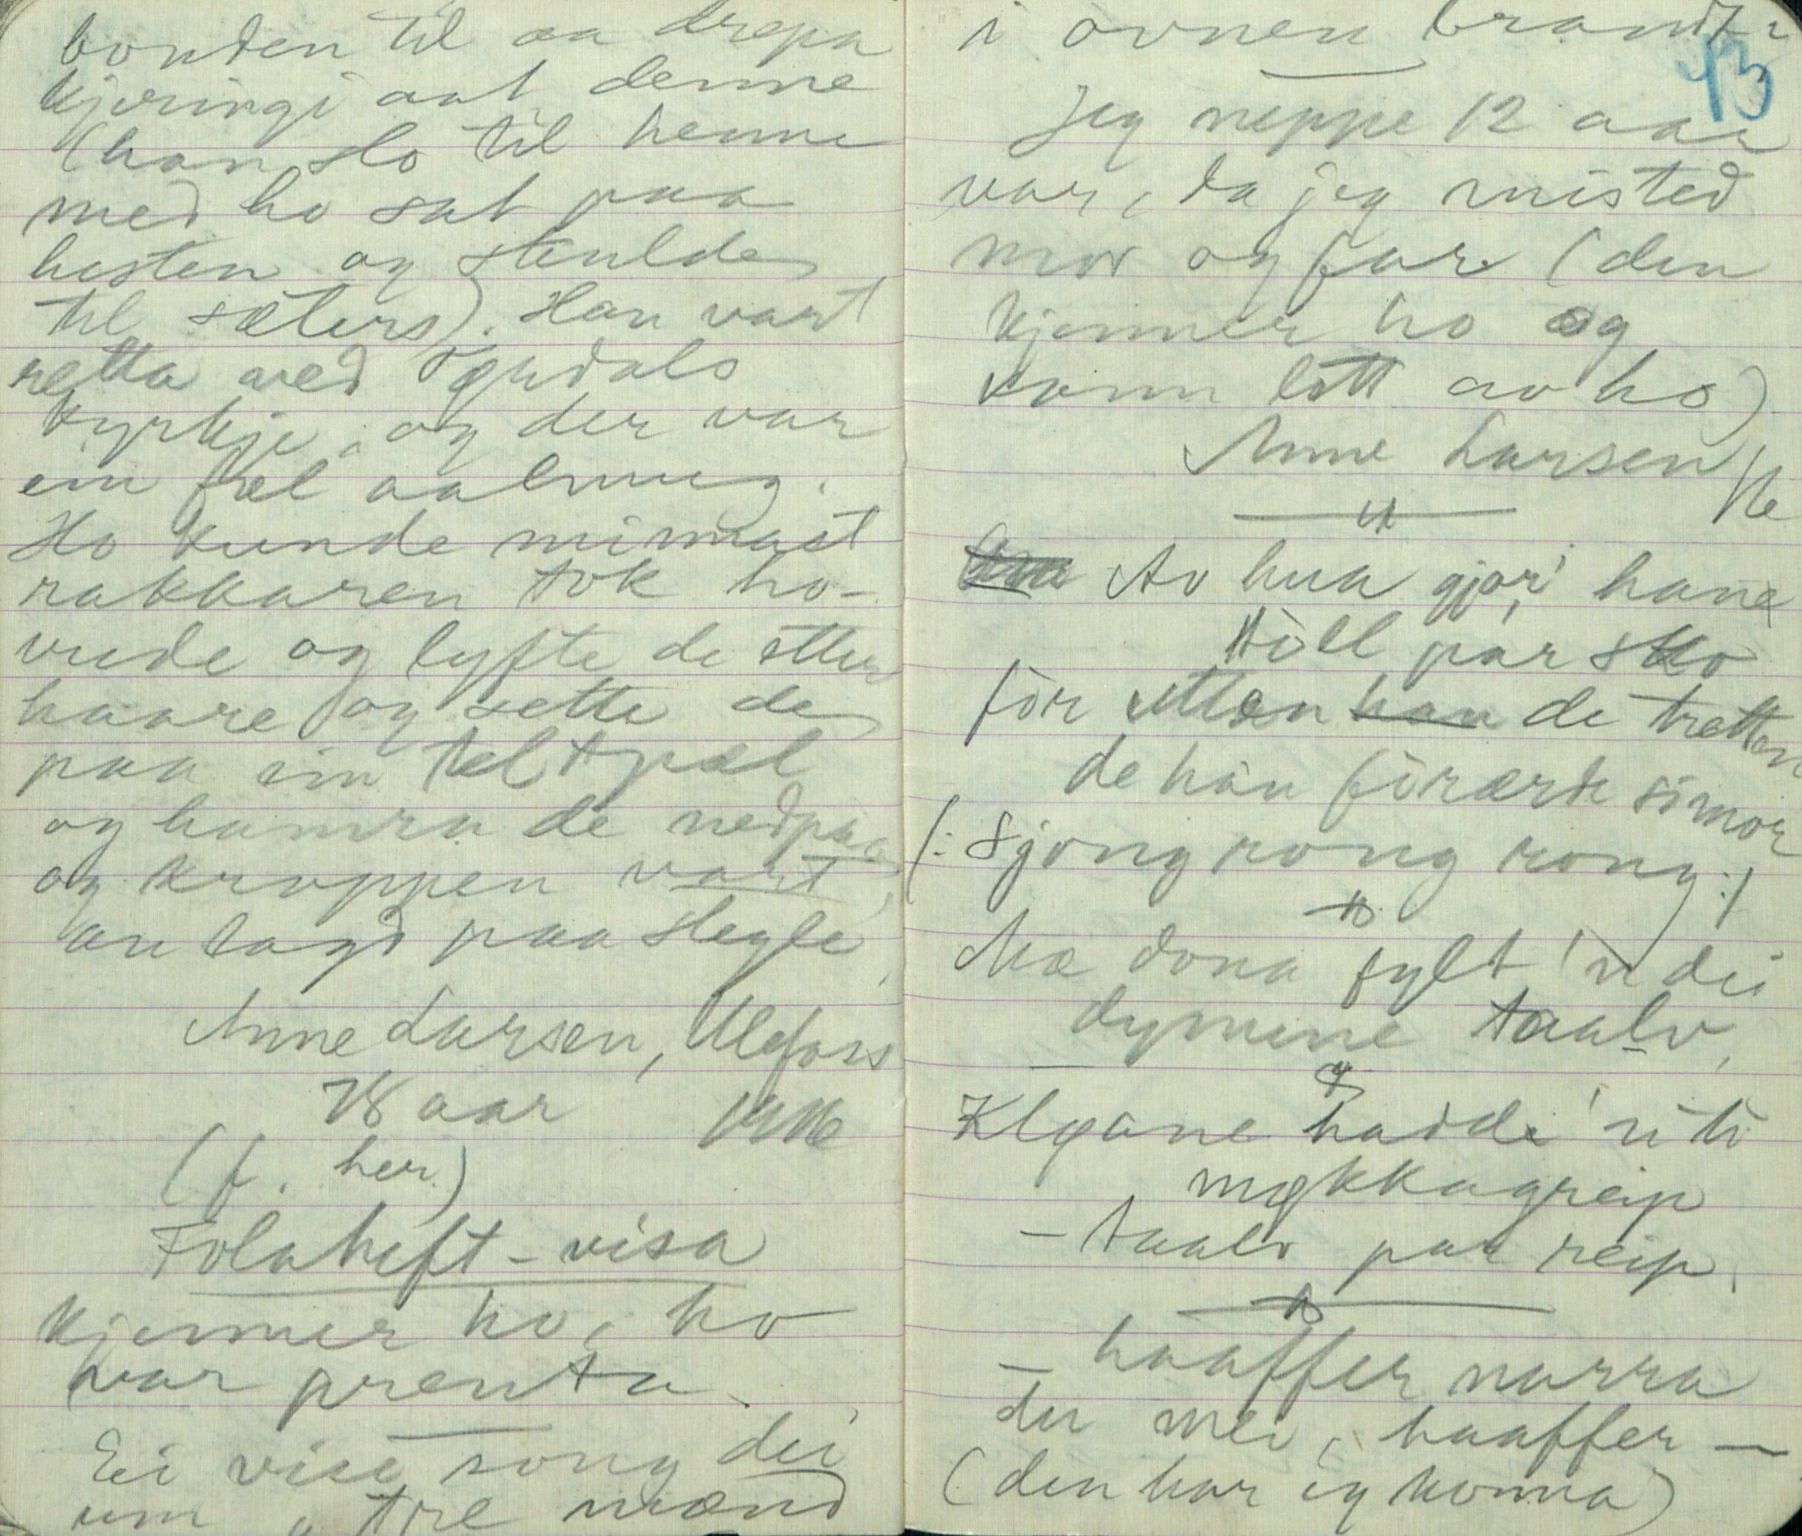 bonden til aa drepa
kjeringi aat denne
(han slo til henne
med ho sat paa
hesten og skulde
til sæters). Han vart
retta ved Ørudals
kyrkje, og der var
ein fæl aalmug.
Ho kunde minnast
rakkaren tok ho-
vude og lyfte de etter
haare og sette de
paa ein telt pæl
og hamra de nedpaa
og kroppen vart
an lagd paa Stegle
Anne Larsen, Ulefoss
78 aar
(f. her)
Folaheft-visa
kjenner ho, ho
var prenta.
Ei vise song dei
um "tre mænd
i ovnen brandt"
43
Jeg neppe 12 aar
var, da jeg misted
mor og far (den
kjenner ho og
kann litt av ho)
Anne Larsen
Av hua gjor' hane
töll pår sko
för utan de tretten
de hån förærte simor
/: Sjong rong rong :/
Mæ dona fylt 'n dei
dynnene taalv,
Kløane hadde 'n ti
møkkagreip
– taalv par reip.
– haaffer narra
du mei, haaffer –
(den har eg honna)